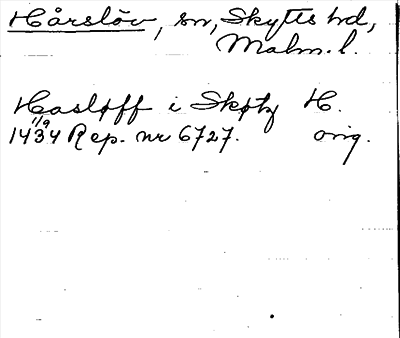 Hårslöv, sn, Skytts hd,
Malm. l.
Hasløff i Skøtz H.
1434 11/9 Rep. nr 6727. orig.